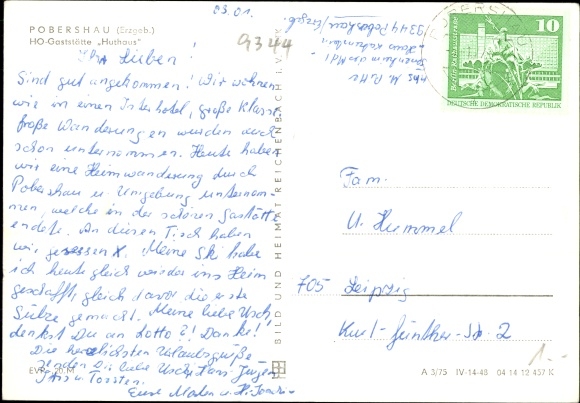 POBERSHAU (Erzgeb.)
HO-Gaststätte „Huthaus"
03.01.
9344
9344 Pobershau/Erzgeb.
Ihr Lieben!
Sind gut angekommen! Wir wohnen
wie in einen Interhotel, große Klasse
große Wanderungen wurden auch
schon unternommen. Heute haben
wir eine Heimwanderung durch
Pobershau u. Umgebung unternom-
men, welche in der schönen Gaststätte
endete. An diesen Tisch haben
wir gesessen X. Meine Ski habe
ich heute gleich wieder ins Heim
geschafft, gleich davor die erste
Stütze gemacht. Meine liebe Usch,
denkst Du an Lotto?! Danke!
Die herzlichsten Urlaubsgrüße
senden Dir liebe Usch, Hans-Jürgen
u. Torsten.
Eure
EVP 0,20 M
BILD UND HEIMAT REICHENBACH i. V.
10
Berlin, Rathausstraße
DEUTSCHE DEMOKRATISCHE REPUBLIK
POBERSHAU
Fam.
U. Hummel
705 Leipzig
Kurt-Günther-Str. 2
1.-
A 3/75 IV-14-48 04 14 12 457 K